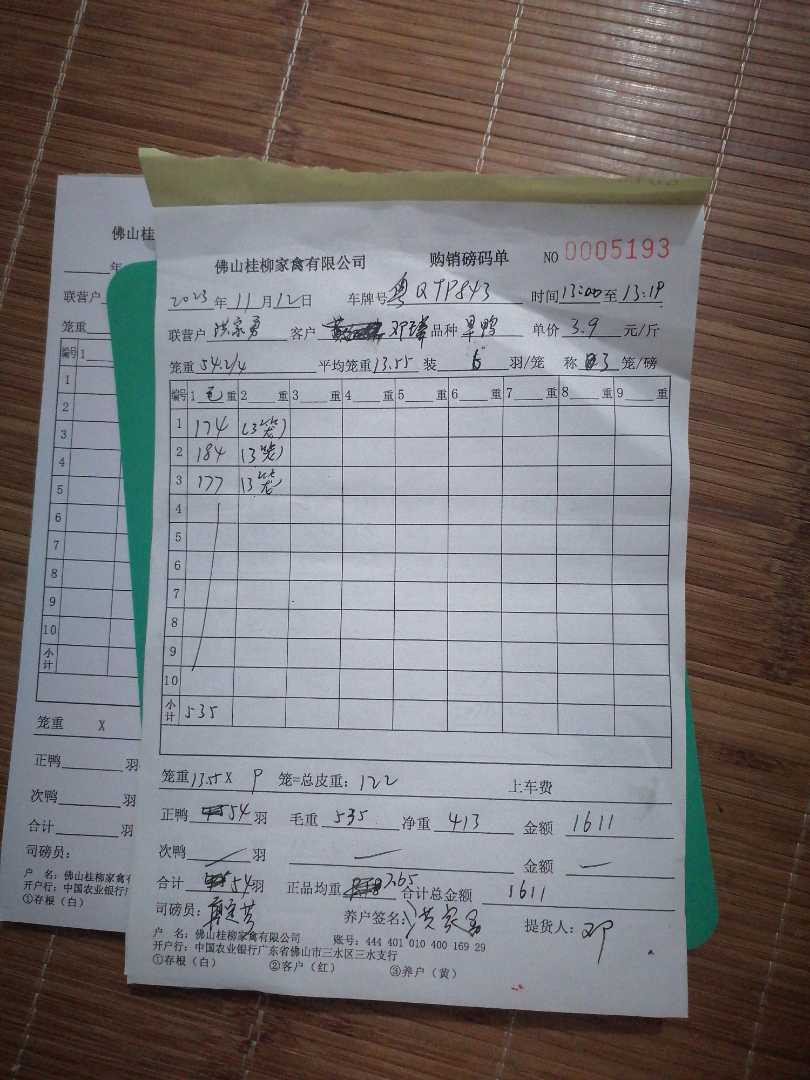 佛山桂柳家禽有限公司 购销磅码单 NO 0005193
2023 年 11 月 12 日 车牌号 粤QTP843 时间 13:00 至 13:19
联营户 洪家勇 客户 邓 品种 旱鸭 单价 3.9 元/斤
笼重 54.2/4 平均笼重 13.55 装 6 羽/笼 称 3 笼/磅
编号 1 毛 重 2 重 3 重 4 重 5 重 6 重 7 重 8 重 9 重
1 174 (3笼)
2 184 (3笼)
3 177 (3笼)
4
5
6
7
8
9
10
小计 535
笼重 13.55 X 9 笼=总皮重: 122 上车费
正鸭 54 羽 毛重 535 净重 413 金额 1611
次鸭 羽 金额
合计 54 羽 正品均重 7.65 合计总金额 1611
司磅员: 养户签名: 洪家勇 提货人: 邓
户 名: 佛山桂柳家禽有限公司 账号: 444 401 010 400 169 29
开户行: 中国农业银行广东省佛山市三水区三水支行
①存根(白) ②客户(红) ③养户(黄)
佛山桂
年
联营户
笼重
编号 1
1
2
3
4
5
6
7
8
9
10
小计
笼重 X
正鸭 羽
次鸭 羽
合计 羽
司磅员:
户 名: 佛山桂柳家禽有
开户行: 中国农业银行广
①存根(白)